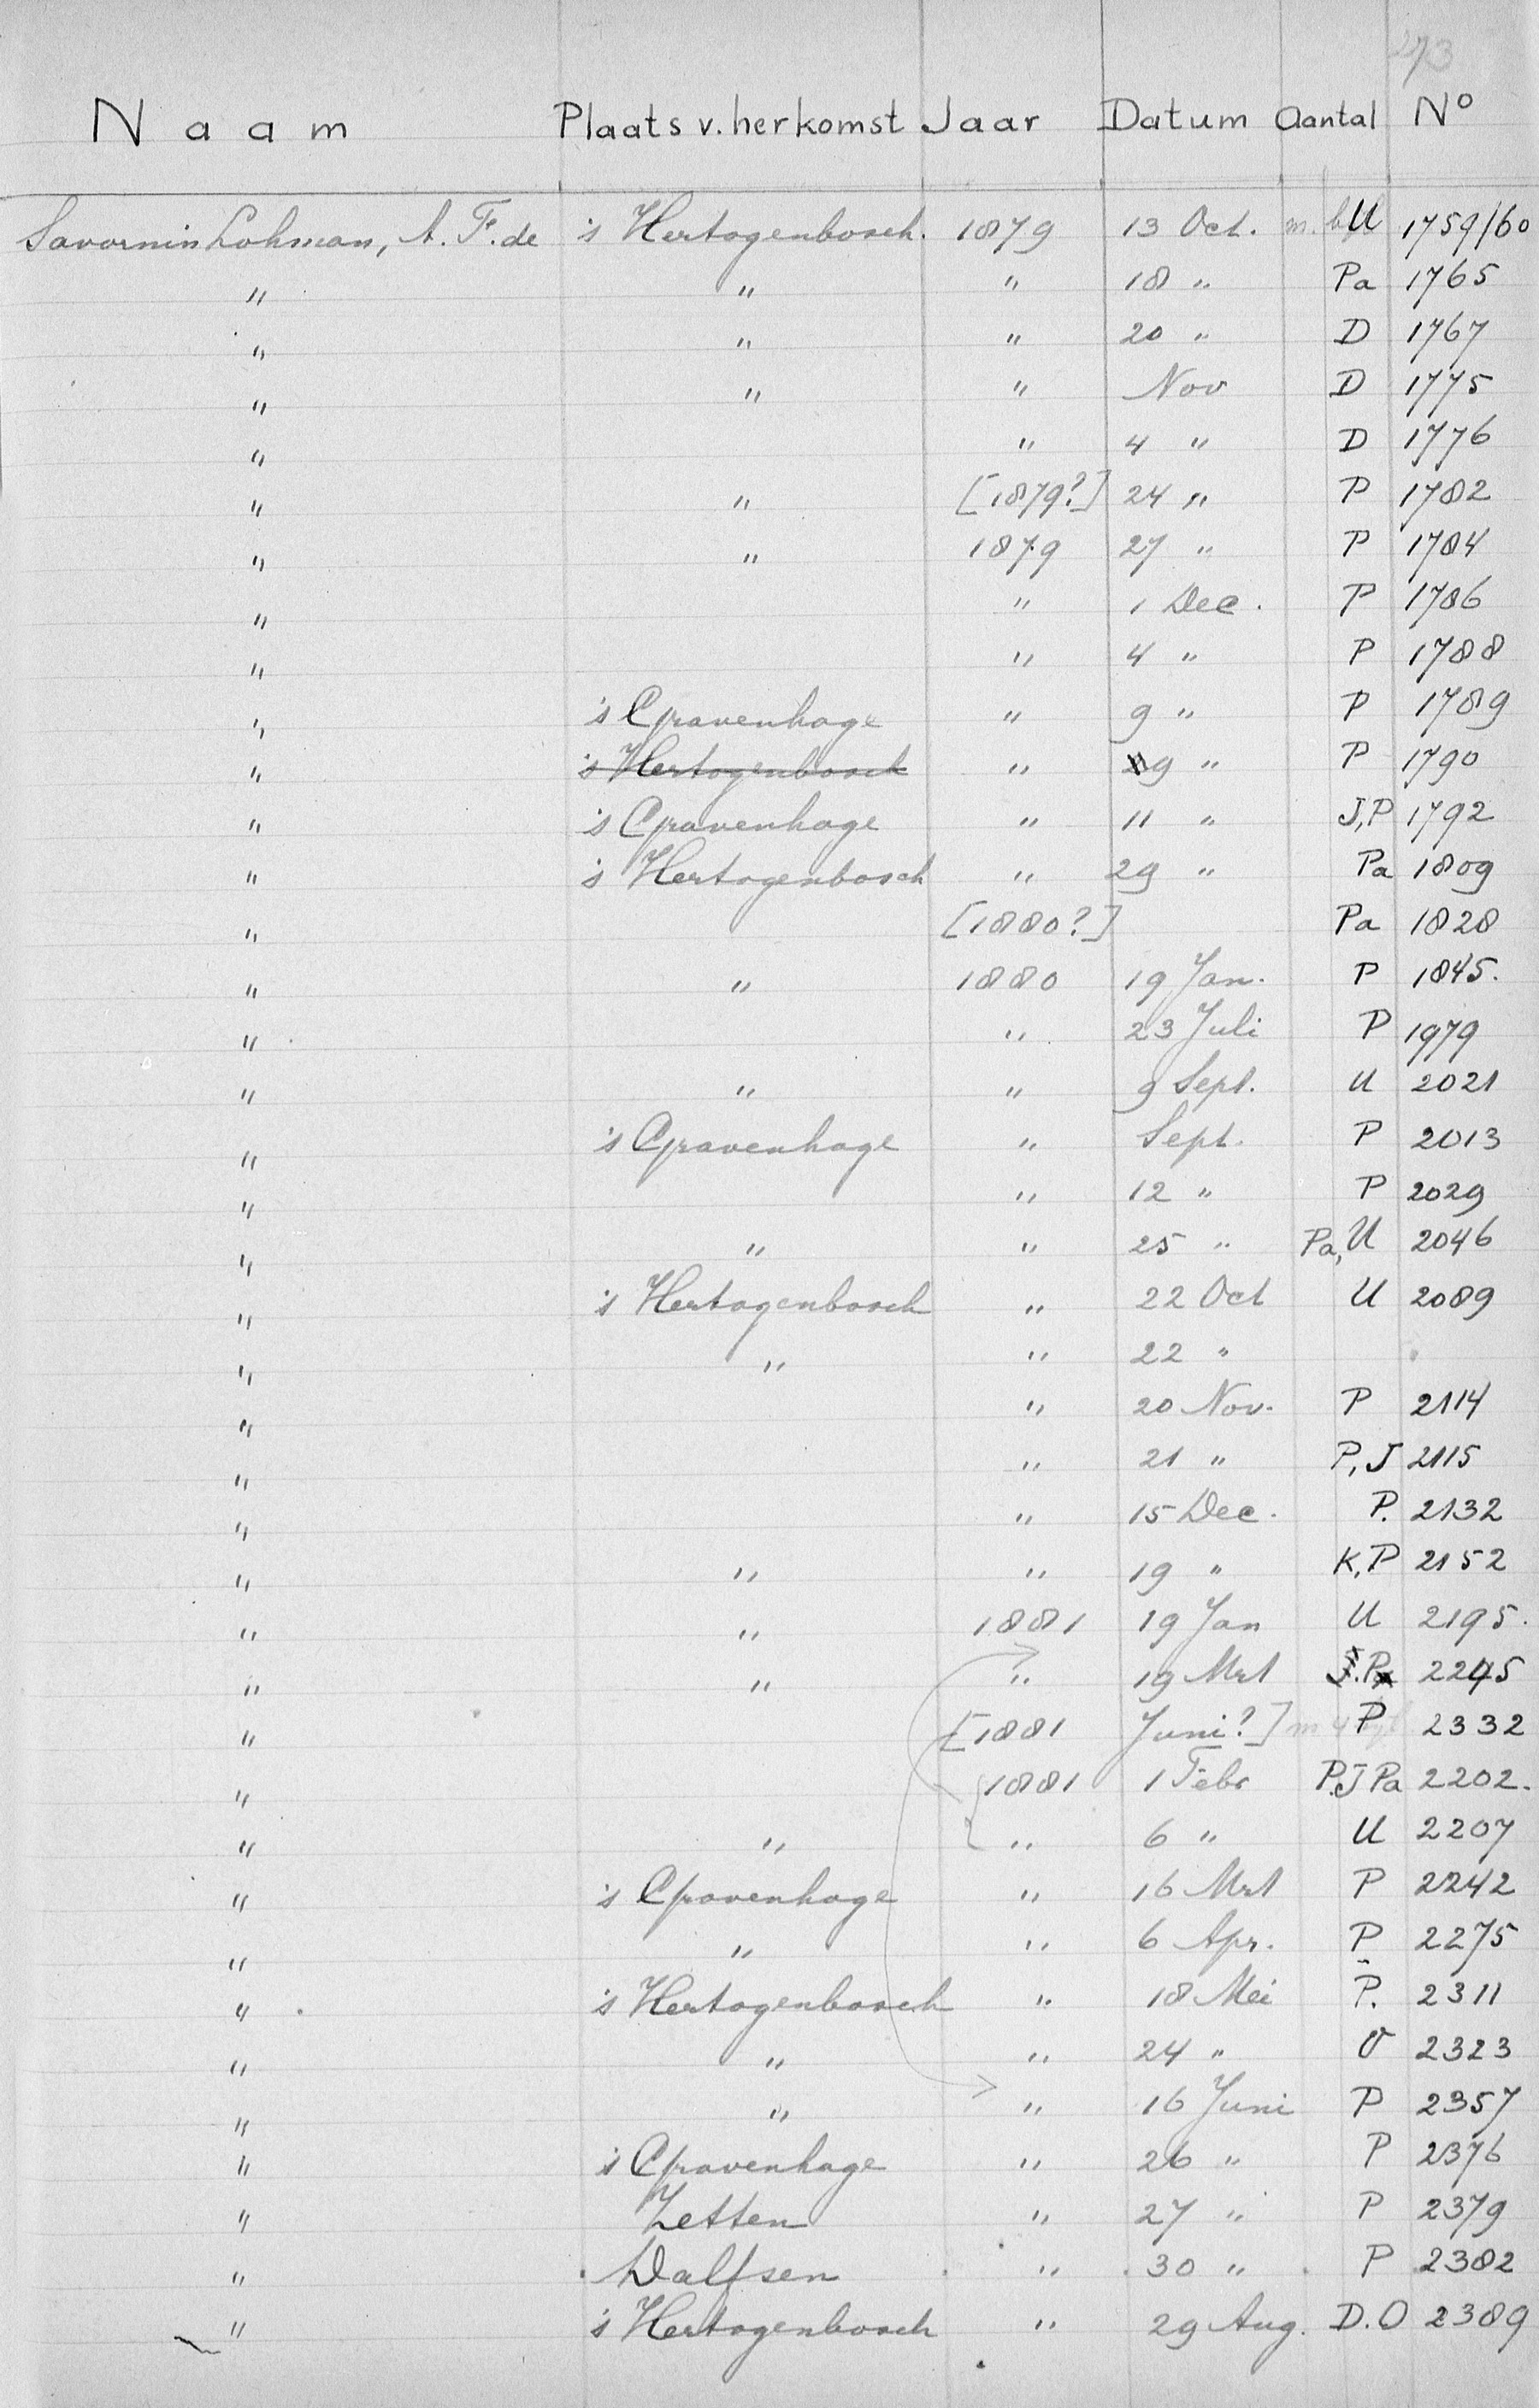 273
Naam Plaats v. herkomst Jaar Datum Aantal No
Savornin Lohman, A. F. de 's Hertogenbosch. 1879 13 Oct. m. U 1759/60
" " " 18 " Pa 1765
" " " 20 " D 1767
" " " Nov D 1775
" " 4 " D 1776
" " [1879?] 24 " P 1782
" " 1879 27 " P 1784
" " 1 Dec. P 1786
" " 4 " P 1788
" 's Gravenhage " 9 " P 1789
" 's Hertogenbosch " 9 " P 1790
" 's Gravenhage " 11 " J,P 1792
" 's Hertogenbosch " 29 " Pa 1809
" [1880?] Pa 1828
" " 1880 19 Jan. P 1845.
" " 23 Juli P 1979
" " " 9 Sept. U 2021
" 's Gravenhage " Sept. P 2013
" " 12 " P 2029
" " " 25 " Pa, U 2046
" 's Hertogenbosch " 22 Oct U 2089
" " " 22 "
" " 20 Nov. P 2114
" " 21 " P, J 2115
" " 15 Dec. P. 2132
" " " 19 " K,P 2152
" " 1881 19 Jan U 2195.
" " " 19 Mrt P 2245
" [1881 Juni?] m 4 P 2332
" 1881 1 Febr P.J Pa 2202.
" " " 6 " U 2207
" 's Gravenhage " 16 Mrt P 2242
" " " 6 Apr. P 2275
" 's Hertogenbosch " 18 Mei P. 2311
" " " 24 " O 2323
" " " 16 Juni P 2357
" 's Gravenhage " 26 " P 2376
" Zetten " 27 " P 2379
" Dalfsen " 30 " P 2382
" 's Hertogenbosch " 29 Aug. D.O 2389